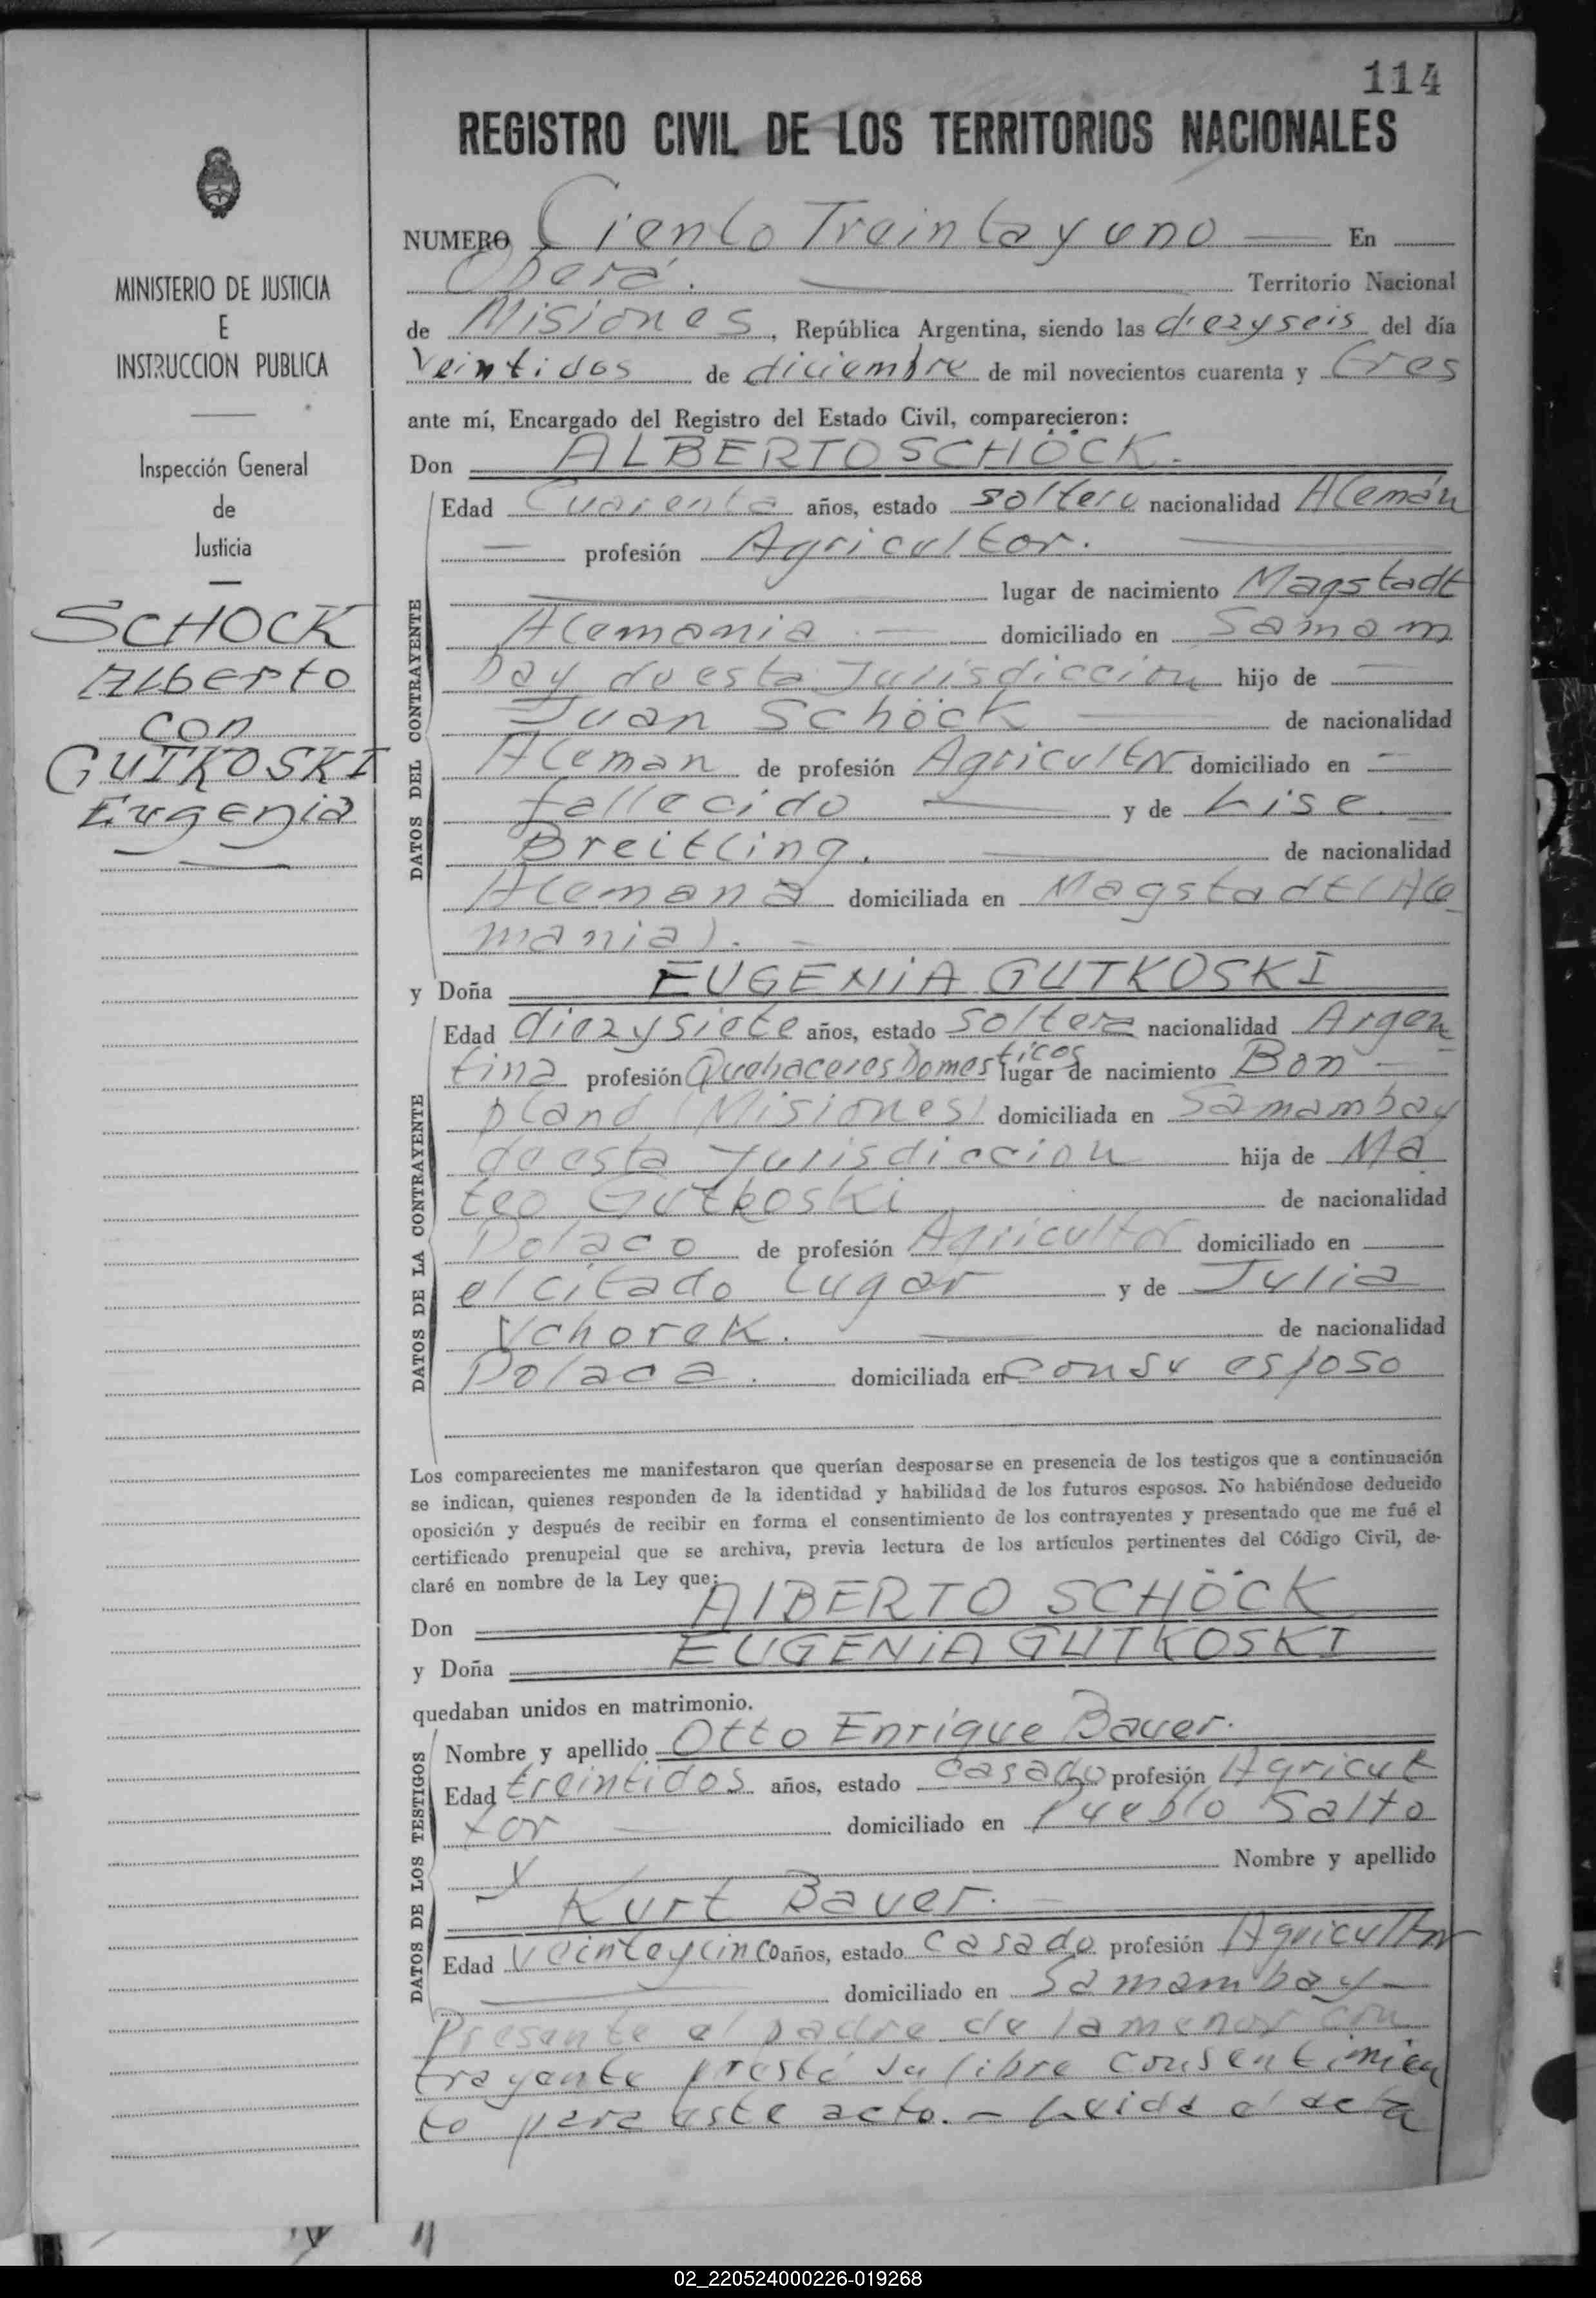 114
REGISTRO CIVIL DE LOS TERRITORIOS NACIONALES
MINISTERIO DE JUSTICIA
E
INSTRUCCION PUBLICA
Inspección General
de
Justicia
SCHOCK
Alberto
con
GUTKOSKI
Eugenia
NUMERO Ciento Treinta y uno En
Oberá. Territorio Nacional
de Misiones, República Argentina, siendo las diezyseis del día
veintidos de diciembre de mil novecientos cuarenta y tres
ante mí, Encargado del Registro del Estado Civil, comparecieron:
Don ALBERTO SCHÖCK.
DATOS DEL CONTRAYENTE
Edad Cuarenta años, estado soltero nacionalidad Alemán
profesión Agricultor.
lugar de nacimiento Magstadt
Alemania domiciliado en Samam
bay de esta Jurisdiccion hijo de
Juan Schöck de nacionalidad
Aleman de profesión Agricultor domiciliado en
fallecido y de Lise
Breitling. de nacionalidad
Alemana domiciliada en Magstadt (Ale
mania).
y Doña EUGENiA GUTKOSKI
DATOS DE LA CONTRAYENTE
Edad diezysiete años, estado soltera nacionalidad Argen
tina profesión Quehaceres Domesticos lugar de nacimiento Bon
pland (Misiones) domiciliada en Samambay
de esta Jurisdiccion hija de Ma
teo Gutkoski de nacionalidad
Polaco de profesión Agricultor domiciliado en
el citado lugar y de Julia
Vchorek. de nacionalidad
Polaca. domiciliada en con su esposo
Los comparecientes me manifestaron que querían desposarse en presencia de los testigos que a continuación
se indican, quienes responden de la identidad y habilidad de los futuros esposos. No habiéndose deducido
oposición y después de recibir en forma el consentimiento de los contrayentes y presentado que me fué el
certificado prenupcial que se archiva, previa lectura de los artículos pertinentes del Código Civil, de-
claré en nombre de la Ley que:
Don AlBERTO SCHÖCK
y Doña EUGENiA GUTKOSKI
quedaban unidos en matrimonio.
DATOS DE LOS TESTIGOS
Nombre y apellido Otto Enrique Bauer.
Edad treintidos años, estado casado profesión Agricul
tor domiciliado en Pueblo Salto
y Nombre y apellido
Kurt Bauer.
Edad veinteycinco años, estado casado profesión Agricultor
domiciliado en Samambay
Presente el padre de la menor con
trayente prestó su libre consentimien
to para este acto. - Leida el acta
02_220524000226-019268